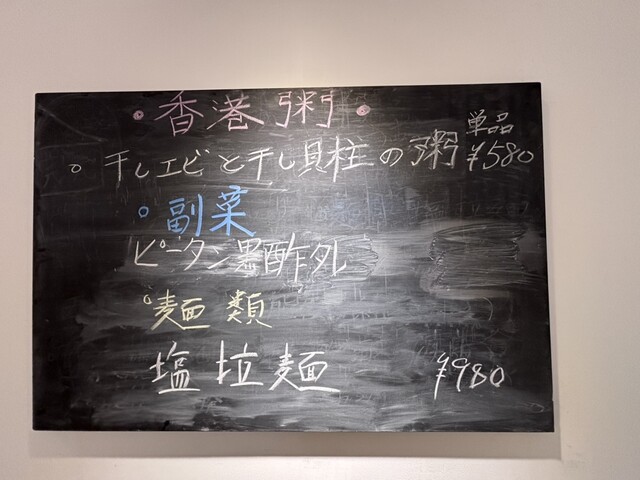 ・香港粥・
。干しエビと干し貝柱の粥 単品 ¥580
。副菜
ピータン黒酢
。麺類
塩拉麺 ¥980